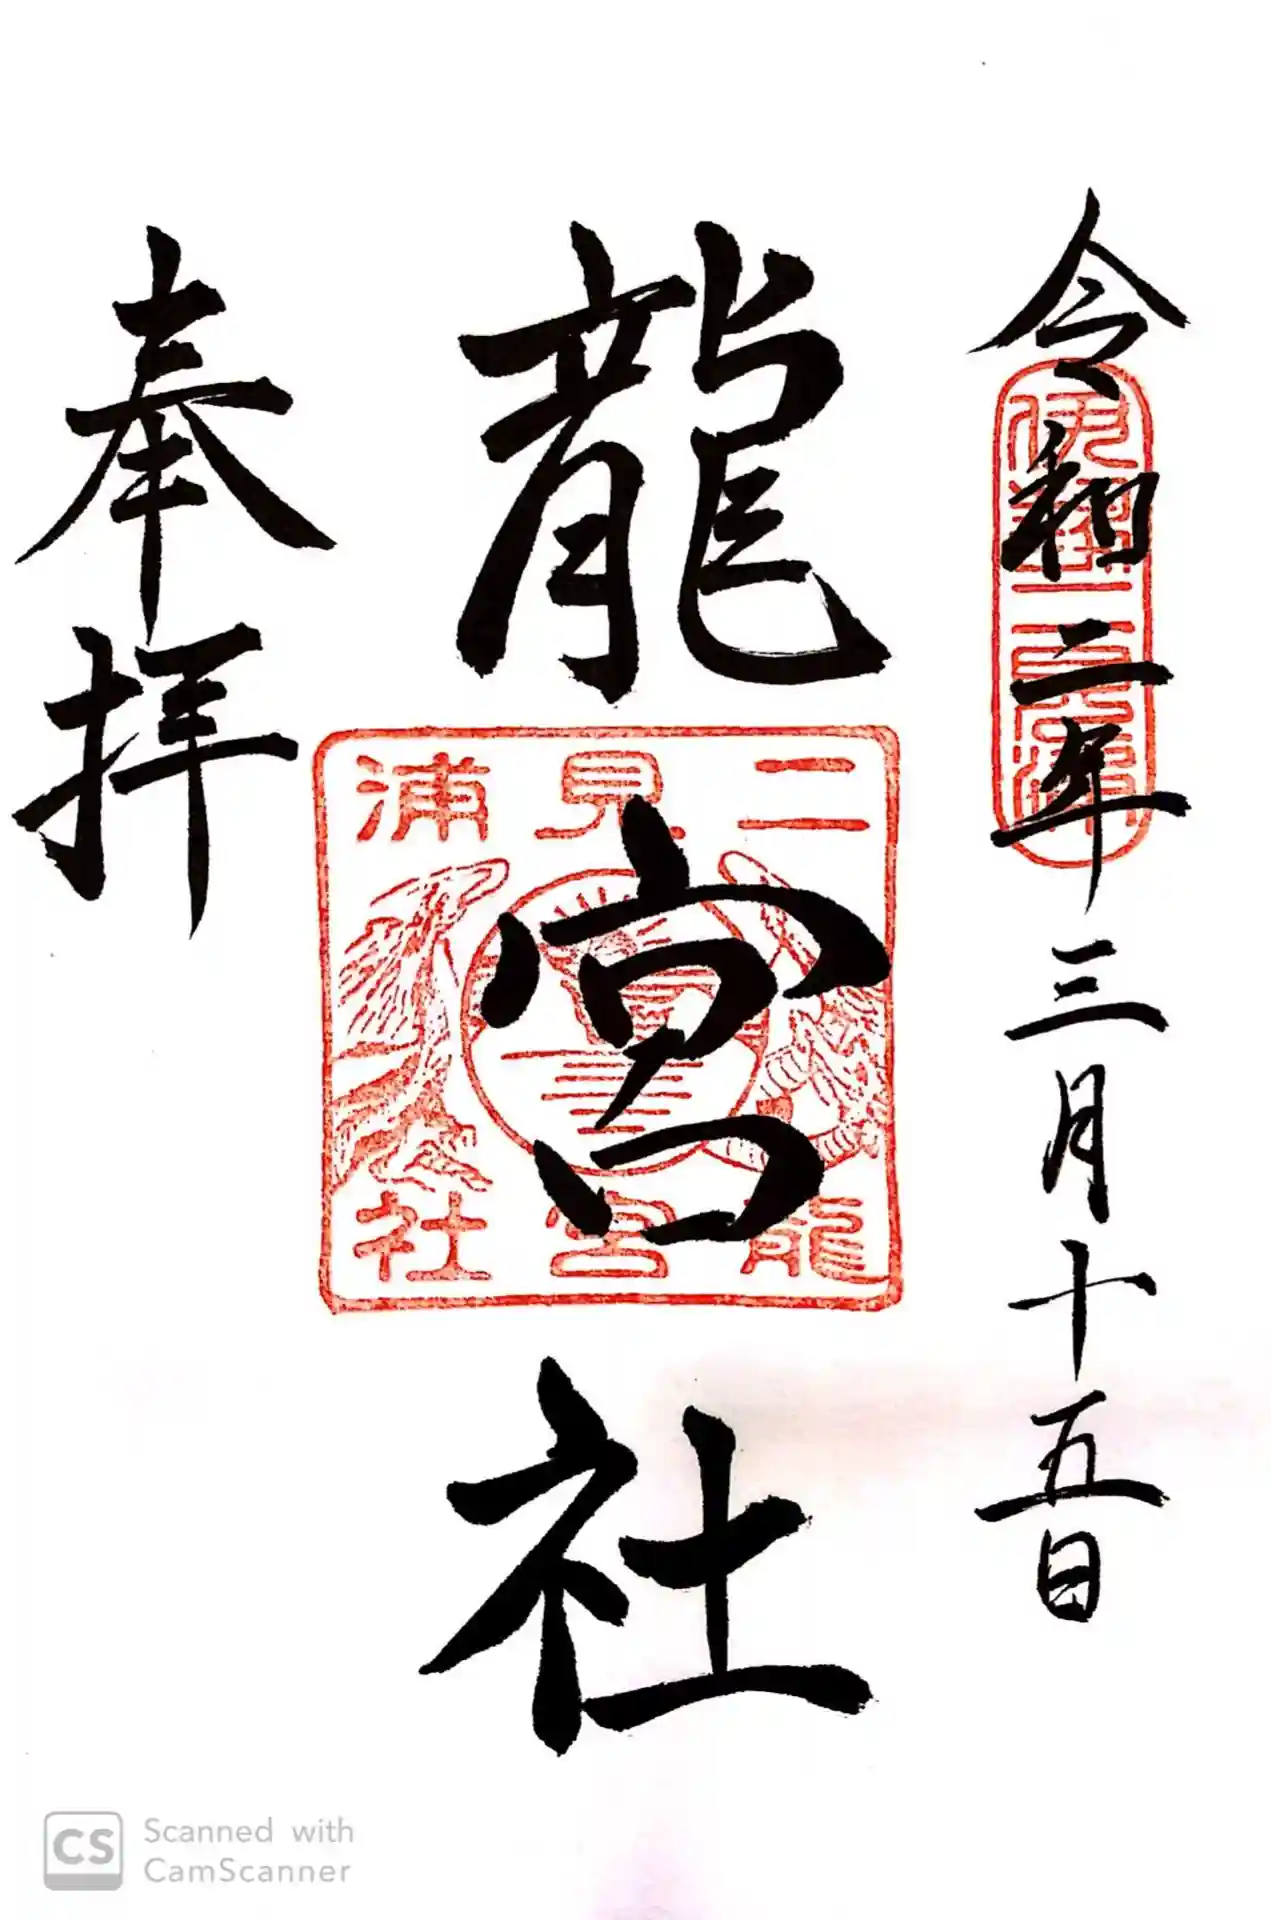 令和二年三月十五日
龍宮社
奉拝
二見浦
龍宮社
Scanned with
CamScanner